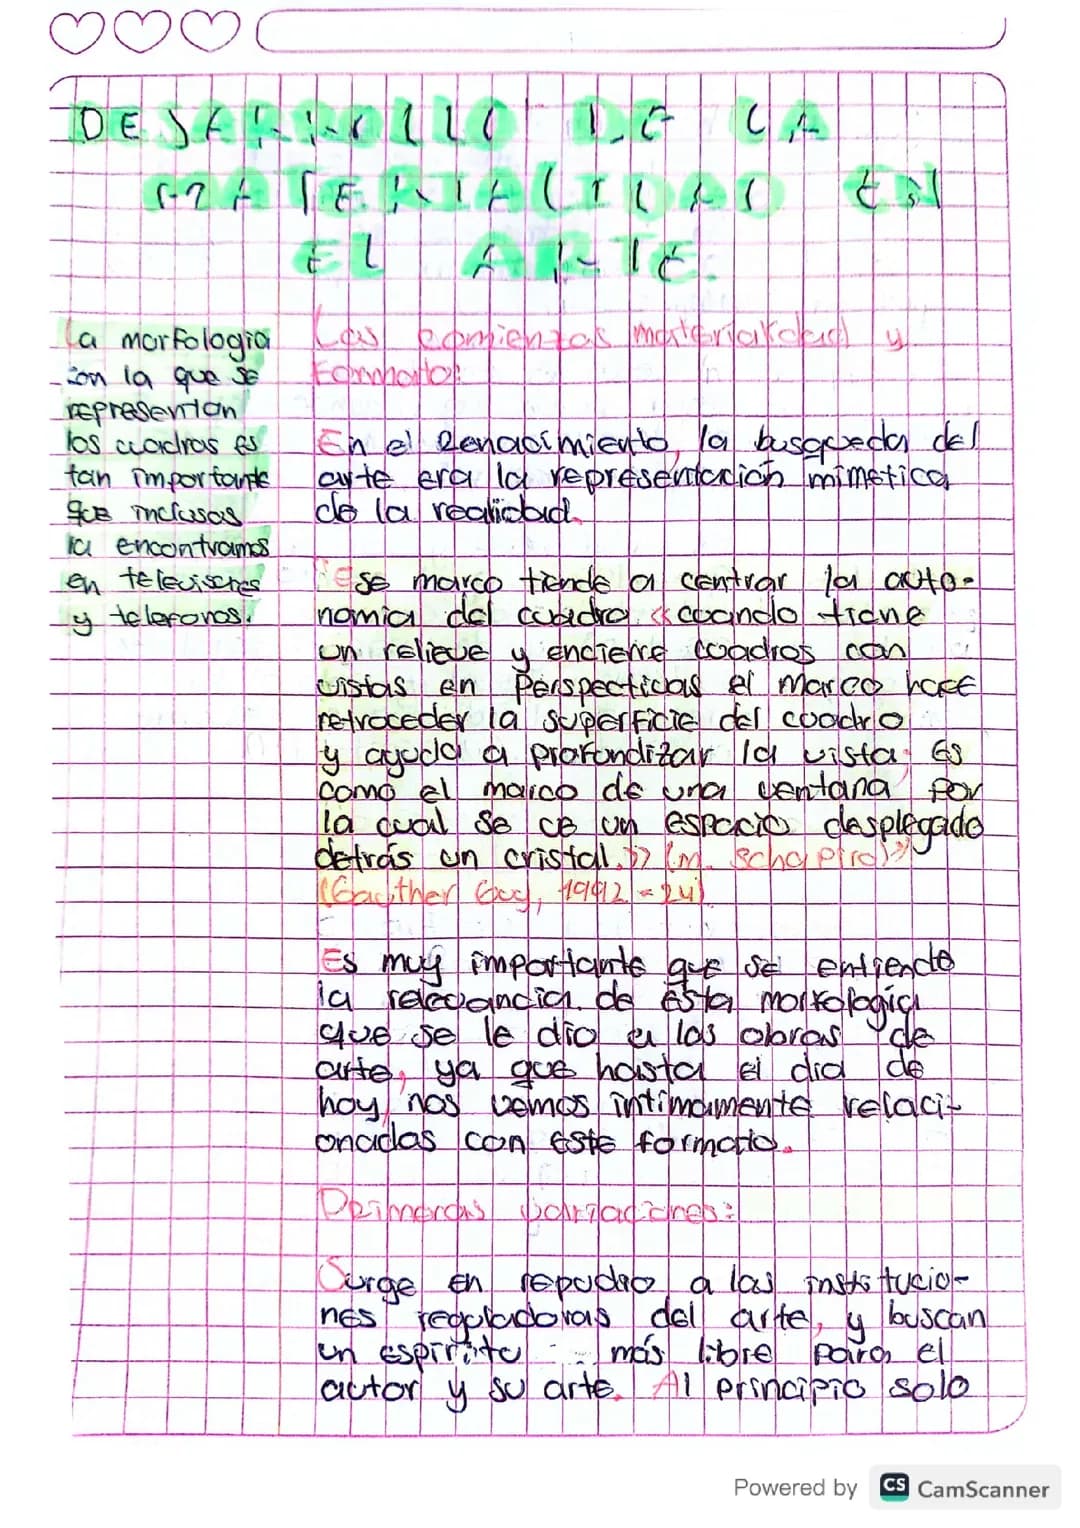 DESARROLLO DE LA
MATERIALIDAD EN
EL ARTE.
La morfologia
con la que se
representan
los cuadros es
tan importante
que inclusas
la encontramos
en televisores
y telefonos.
Los comienzos materialidad y
Formato:
En el Renacimiento, la busqueda del
arte era la representación mimetica
de la realidad.
"Ese marco tiende a centrar la auto-
nomia del cuadro «cuando tiene
un relieve y encierre cuadros con
vistas en Perspectivas el marco hace
retroceder la superficie del cuadro
y ayuda a profundizar la vista. Es
como el marco de una ventana por
la cual se ve un espacio desplegado
detrás un cristal.» (M. Schapiro)"
(Gauther Guy, 1992 = 24)
Es muy importante que se entienda
la relevancia de ésta morfologia
que se le dio a las obras de
arte, ya que hasta el dia de
hoy nos vemos intimamente relaci-
onadas con este formato.
Primeras variaciones:
Surge en repudio a las institucio-
nes reguladoras del arte, y buscan
un espiritu más libre para el
autor y su arte. Al principio solo
Powered by CS CamScanner